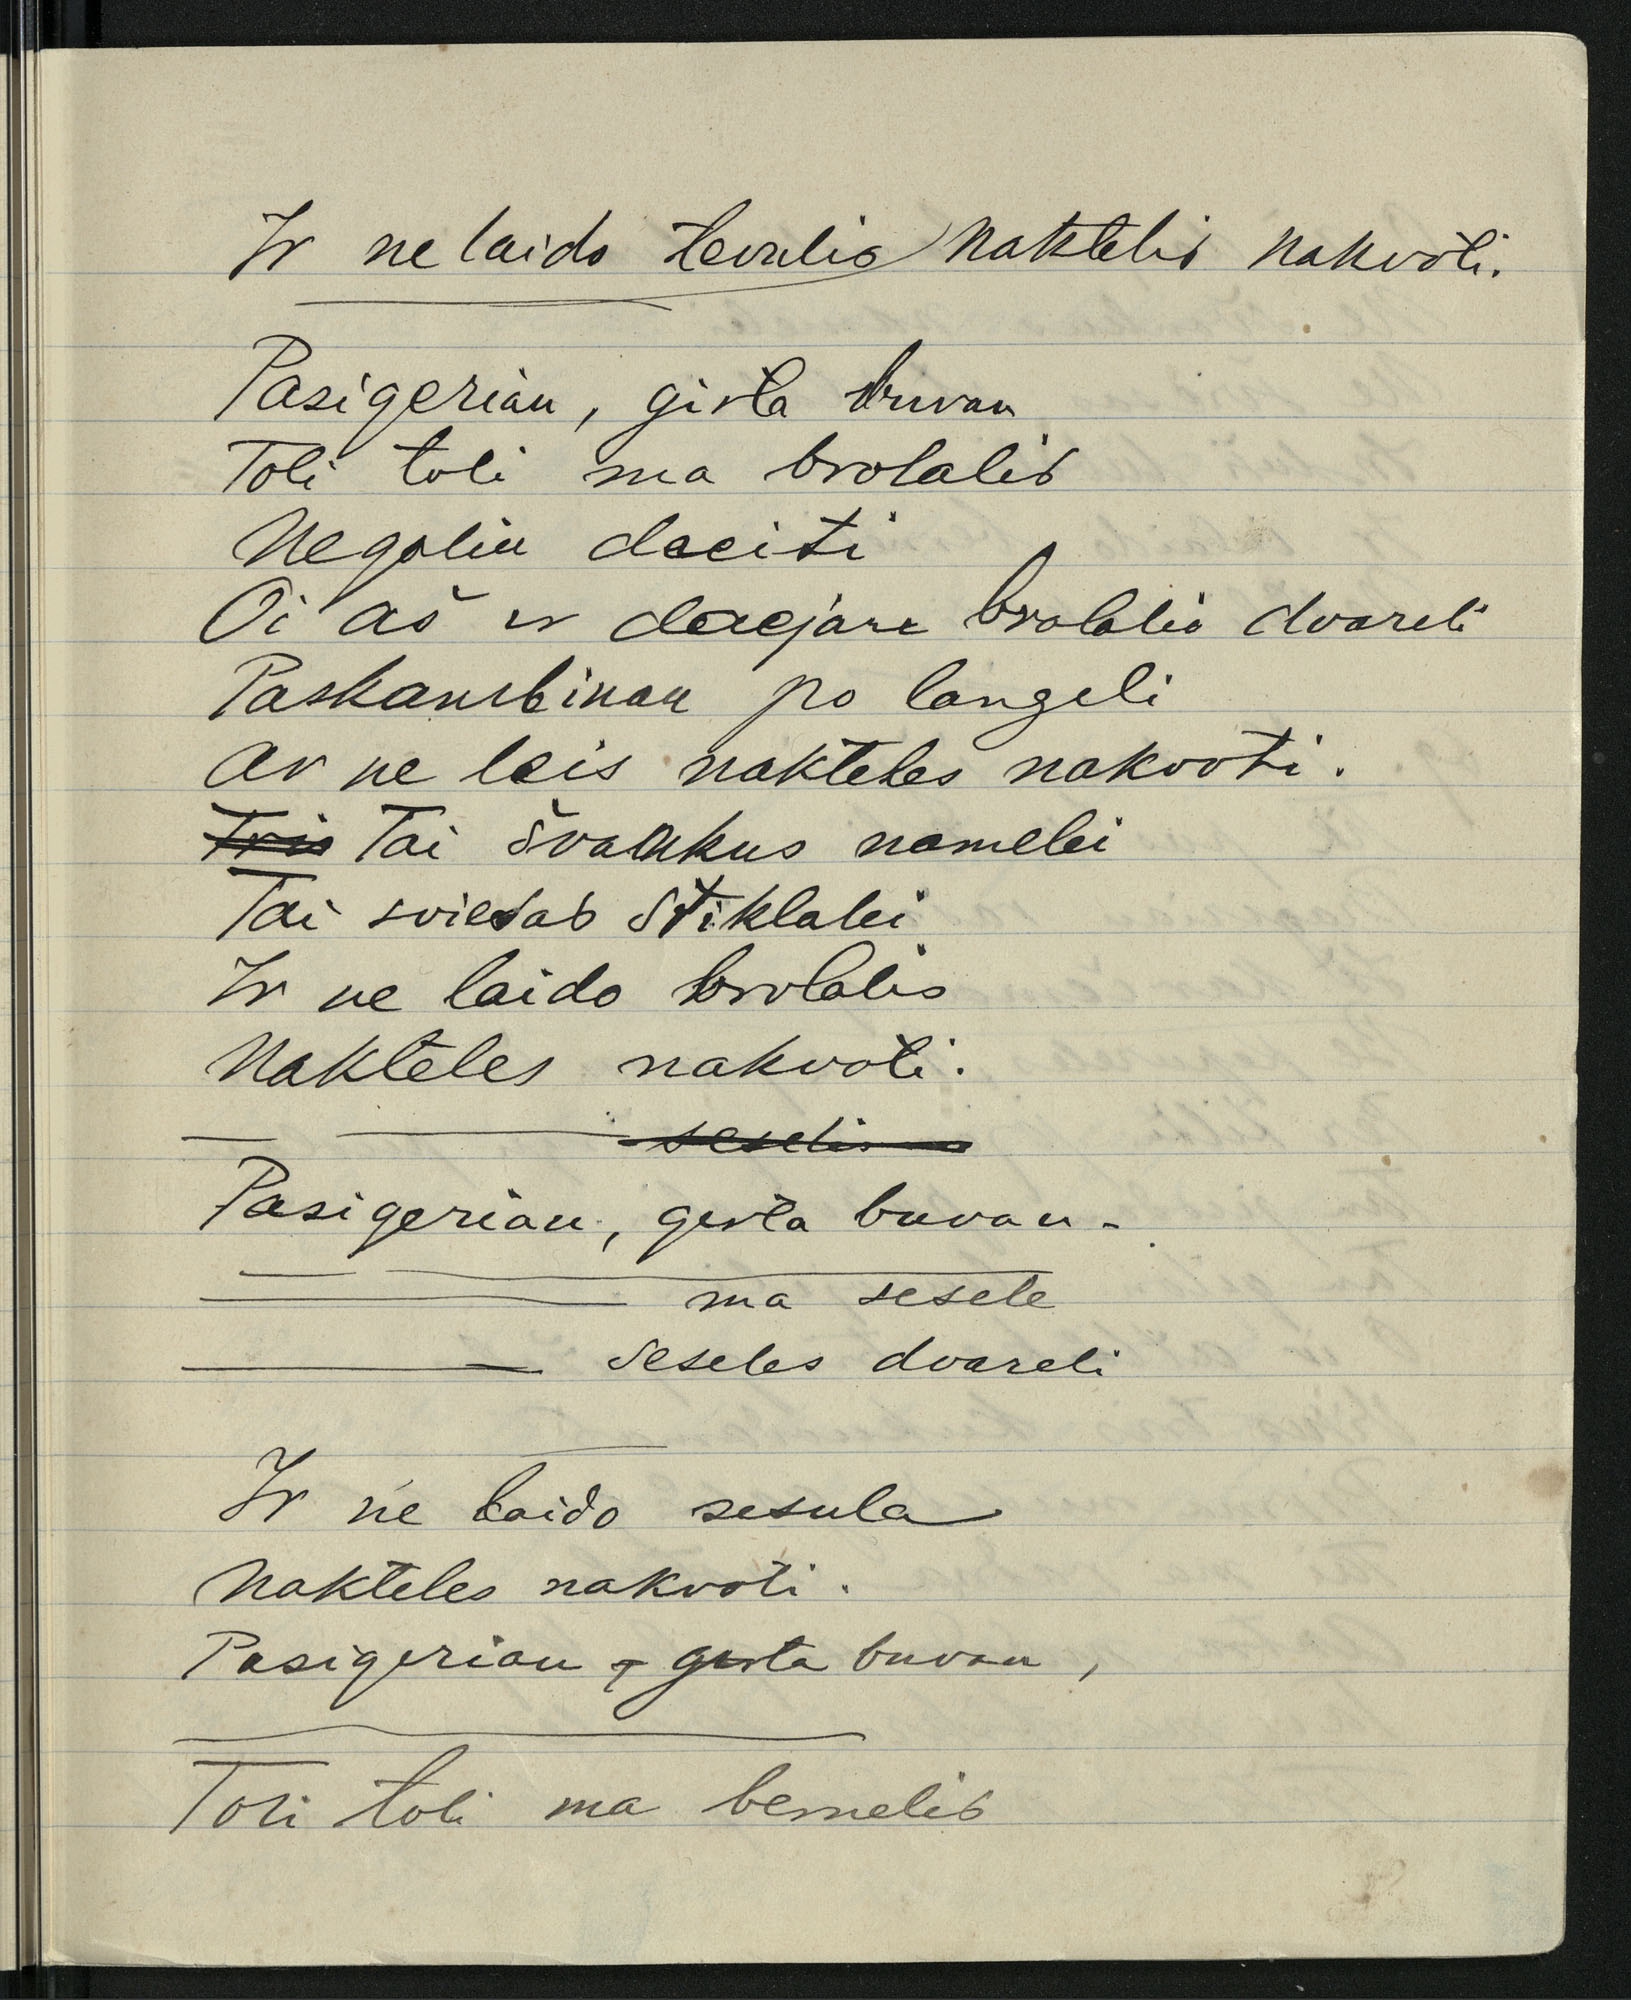 Ir ne laido tevulis naktelis nakvoti.
Pasigerian, girta buvau
Toli toli ma brolalis
Negaliu daeiti
Oi aš ir daejau brolalio dvareli
Paskambinau po langeli
Ar ne leis nakteles nakvoti.
Tris Tai švankus namelei
Tai sviesas stiklalei
Ir ne laido brolalis
Nakteles nakvoti.
seselis
Pasigerian, girta buvau -
ma sesele
Seseles dvareli
Ir ne laido sesula
Nakteles nakvoti.
Pasigerian - girta buvau,
Toli toli ma bernelis